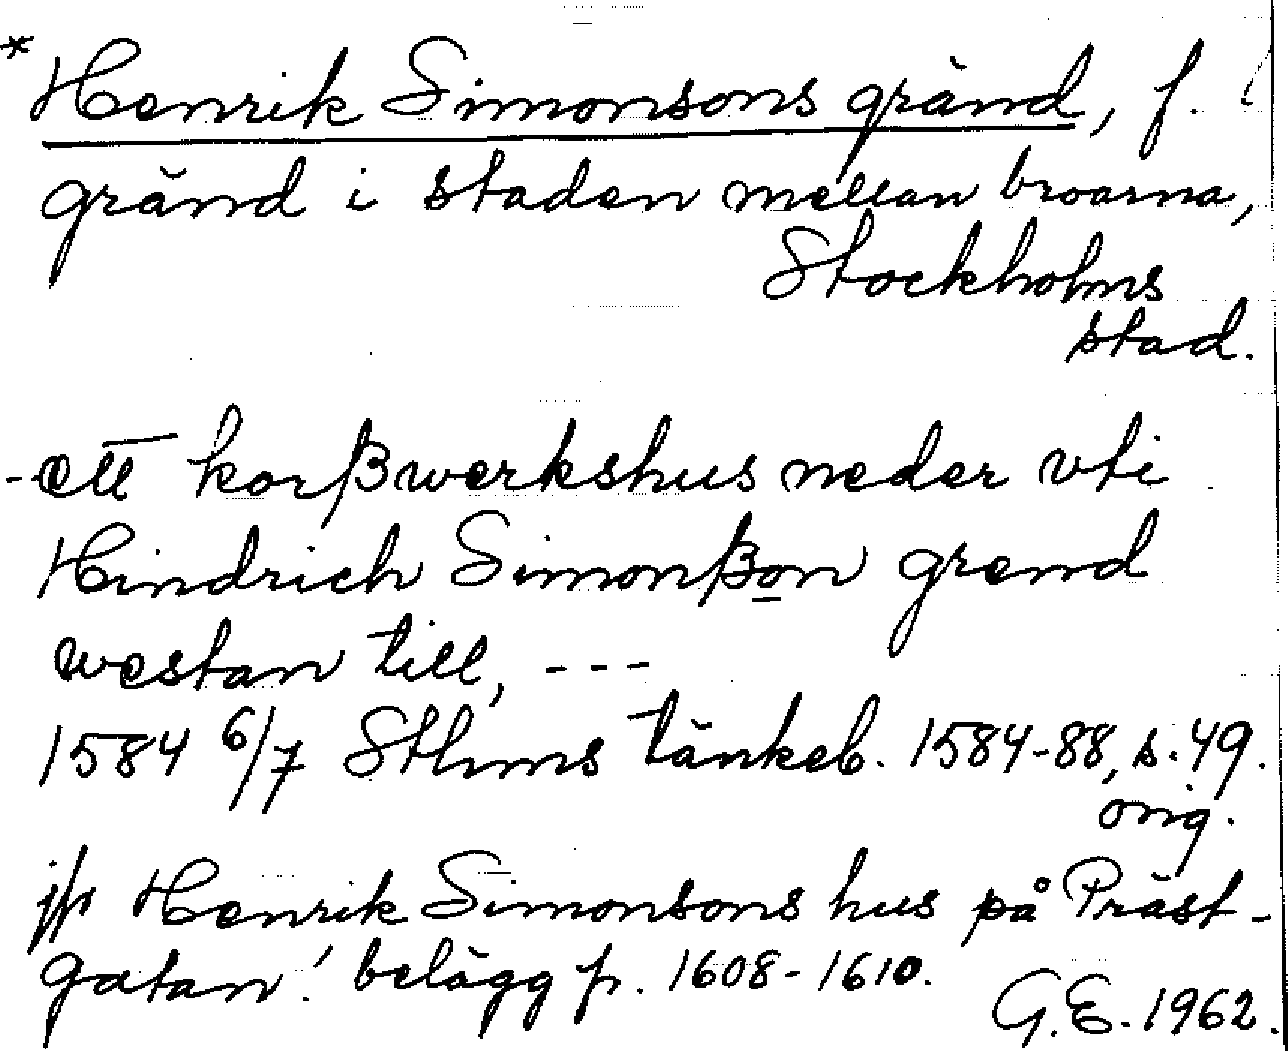 * Henrik Simonsons gränd, f.
gränd i staden mellan broarna,
Stockholms
stad.
- ett korßwerkshus neder vti
Hindrich Simonßon grend
westan till, ---
1584 6/7 Sthms tänkeb. 1584-88, s. 49.
orig.
jfr Henrik Simonsons hus på Präst-
gatan! belägg fr. 1608-1610.
G.E. 1962.